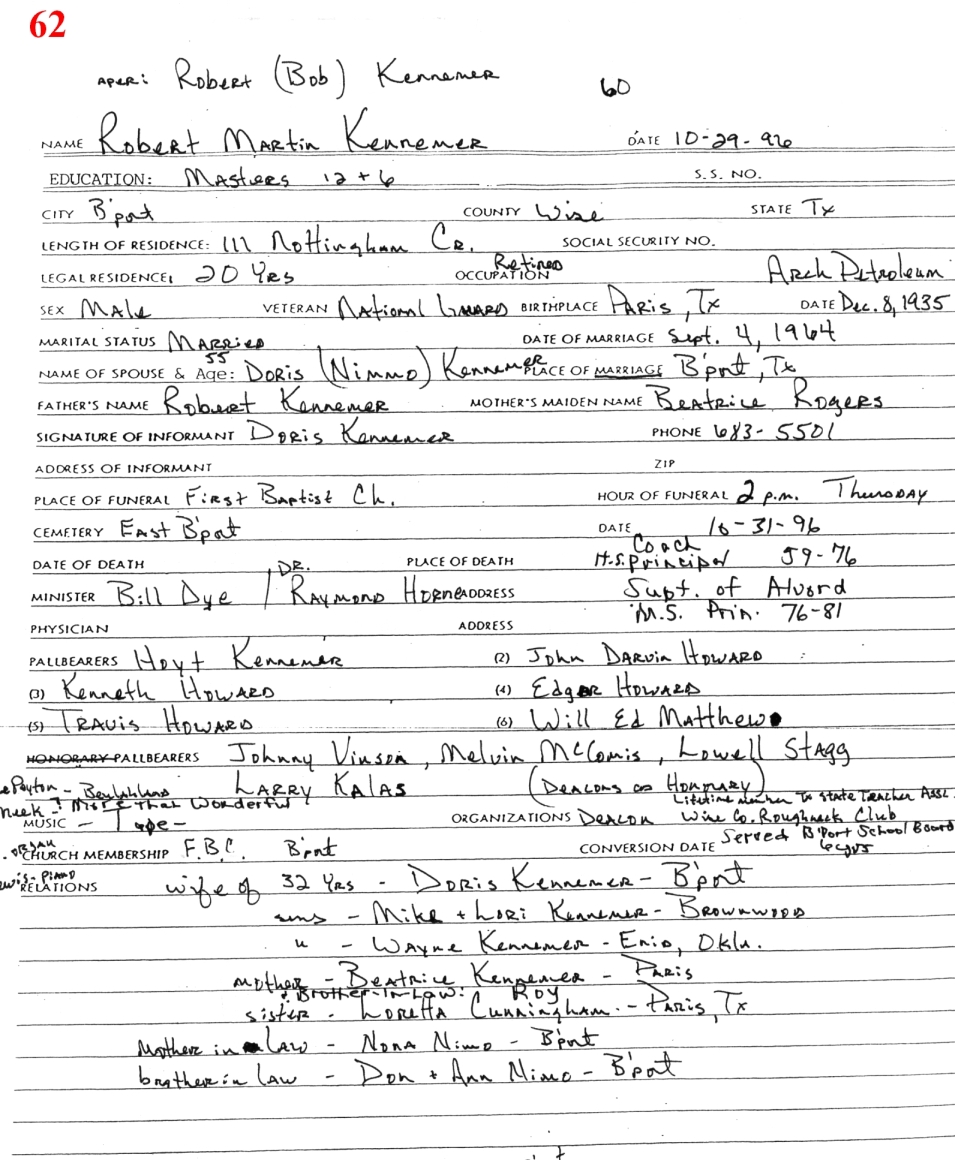 62
APER: Robert (Bob) Kennemer 60
NAME Robert Martin Kennemer DATE 10-29-96
EDUCATION: Masters 12 + 6 S.S. NO.
CITY B'port COUNTY Wise STATE Tx
LENGTH OF RESIDENCE: 111 Nottingham Cr. SOCIAL SECURITY NO.
LEGAL RESIDENCE: 20 Yrs OCCUPATION Retired Arch Petroleum
SEX Male VETERAN National Guard BIRTHPLACE Paris, Tx DATE Dec. 8, 1935
MARITAL STATUS Married DATE OF MARRIAGE Sept. 4, 1964
NAME OF SPOUSE & Age: 55 Doris (Nimmo) Kennemer PLACE OF MARRIAGE B'port, Tx
FATHER'S NAME Robert Kennemer MOTHER'S MAIDEN NAME Beatrice Rogers
SIGNATURE OF INFORMANT Doris Kennemer PHONE 683-5501
ADDRESS OF INFORMANT ZIP
PLACE OF FUNERAL First Baptist Ch. HOUR OF FUNERAL 2 p.m. Thursday
CEMETERY East B'port DATE 10-31-96
DATE OF DEATH PLACE OF DEATH Coach H.S. Principal 59-76
MINISTER Bill Dye / DR. Raymond Horne ADDRESS Supt. of Alvord
M.S. Prin. 76-81
PHYSICIAN ADDRESS
PALLBEARERS Hoyt Kennemer (2) John Darvin Howard
(3) Kenneth Howard (4) Edgar Howard
(5) Travis Howard (6) Will Ed Matthew
HONORARY PALLBEARERS Johnny Vinson, Melvin McComis, Lowell Stagg
Peyton - Beulahland Larry Kalas (Deacons as Honorary)
More That Wonderful Lifetime member To State Teacher Assc.
MUSIC - Tape - ORGANIZATIONS Deacon Wise Co. Roughneck Club
Served B'Port School Board 6 yrs
ORGAN
CHURCH MEMBERSHIP F.B.C. B'port CONVERSION DATE
Piano
RELATIONS wife of 32 Yrs - Doris Kennemer - B'port
sons - Mike + Lori Kennemer - Brownwood
" - Wayne Kennemer - Enid, Okla.
mother - Beatrice Kennemer - Paris
+ Brother-In-Law: Roy
sister - Loretta Cunningham - Paris, Tx
Mother in Law - Nona Nimo - B'port
brother in Law - Don + Ann Nimo - B'port